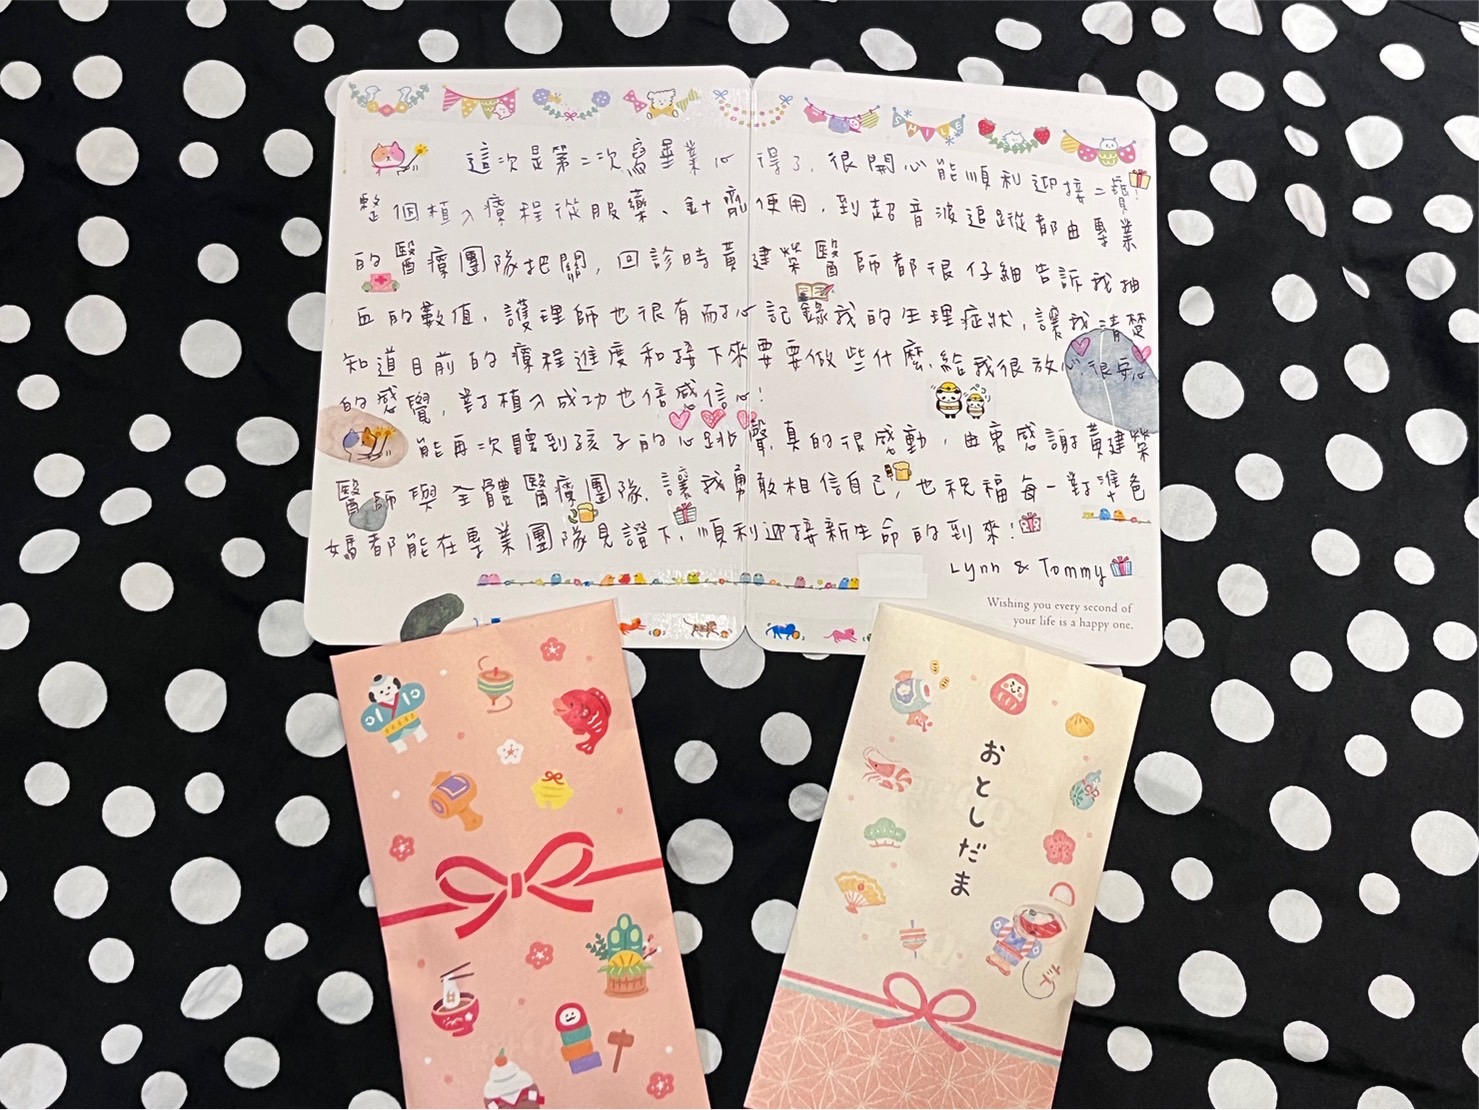 SMILE
這次是第二次寫畢業心得了，很開心能順利迎接二寶！
整個植入療程從服藥、針劑使用，到超音波追蹤都由專業
的醫療團隊把關，回診時黃建榮醫師都很仔細告訴我抽
血的數值，護理師也很有耐心記錄我的生理症狀，讓我清楚
知道目前的療程進度和接下來要要做些什麼，給我很放心、很安心
的感覺，對植入成功也倍感信心！
能再次聽到孩子的心跳聲，真的很感動，由衷感謝黃建榮
醫師與全體醫療團隊，讓我勇敢相信自己，也祝福每一對準爸
媽都能在專業團隊見證下，順利迎接新生命的到來！
Lynn & Tommy
Wishing you every second of
your life is a happy one.
おとしだま